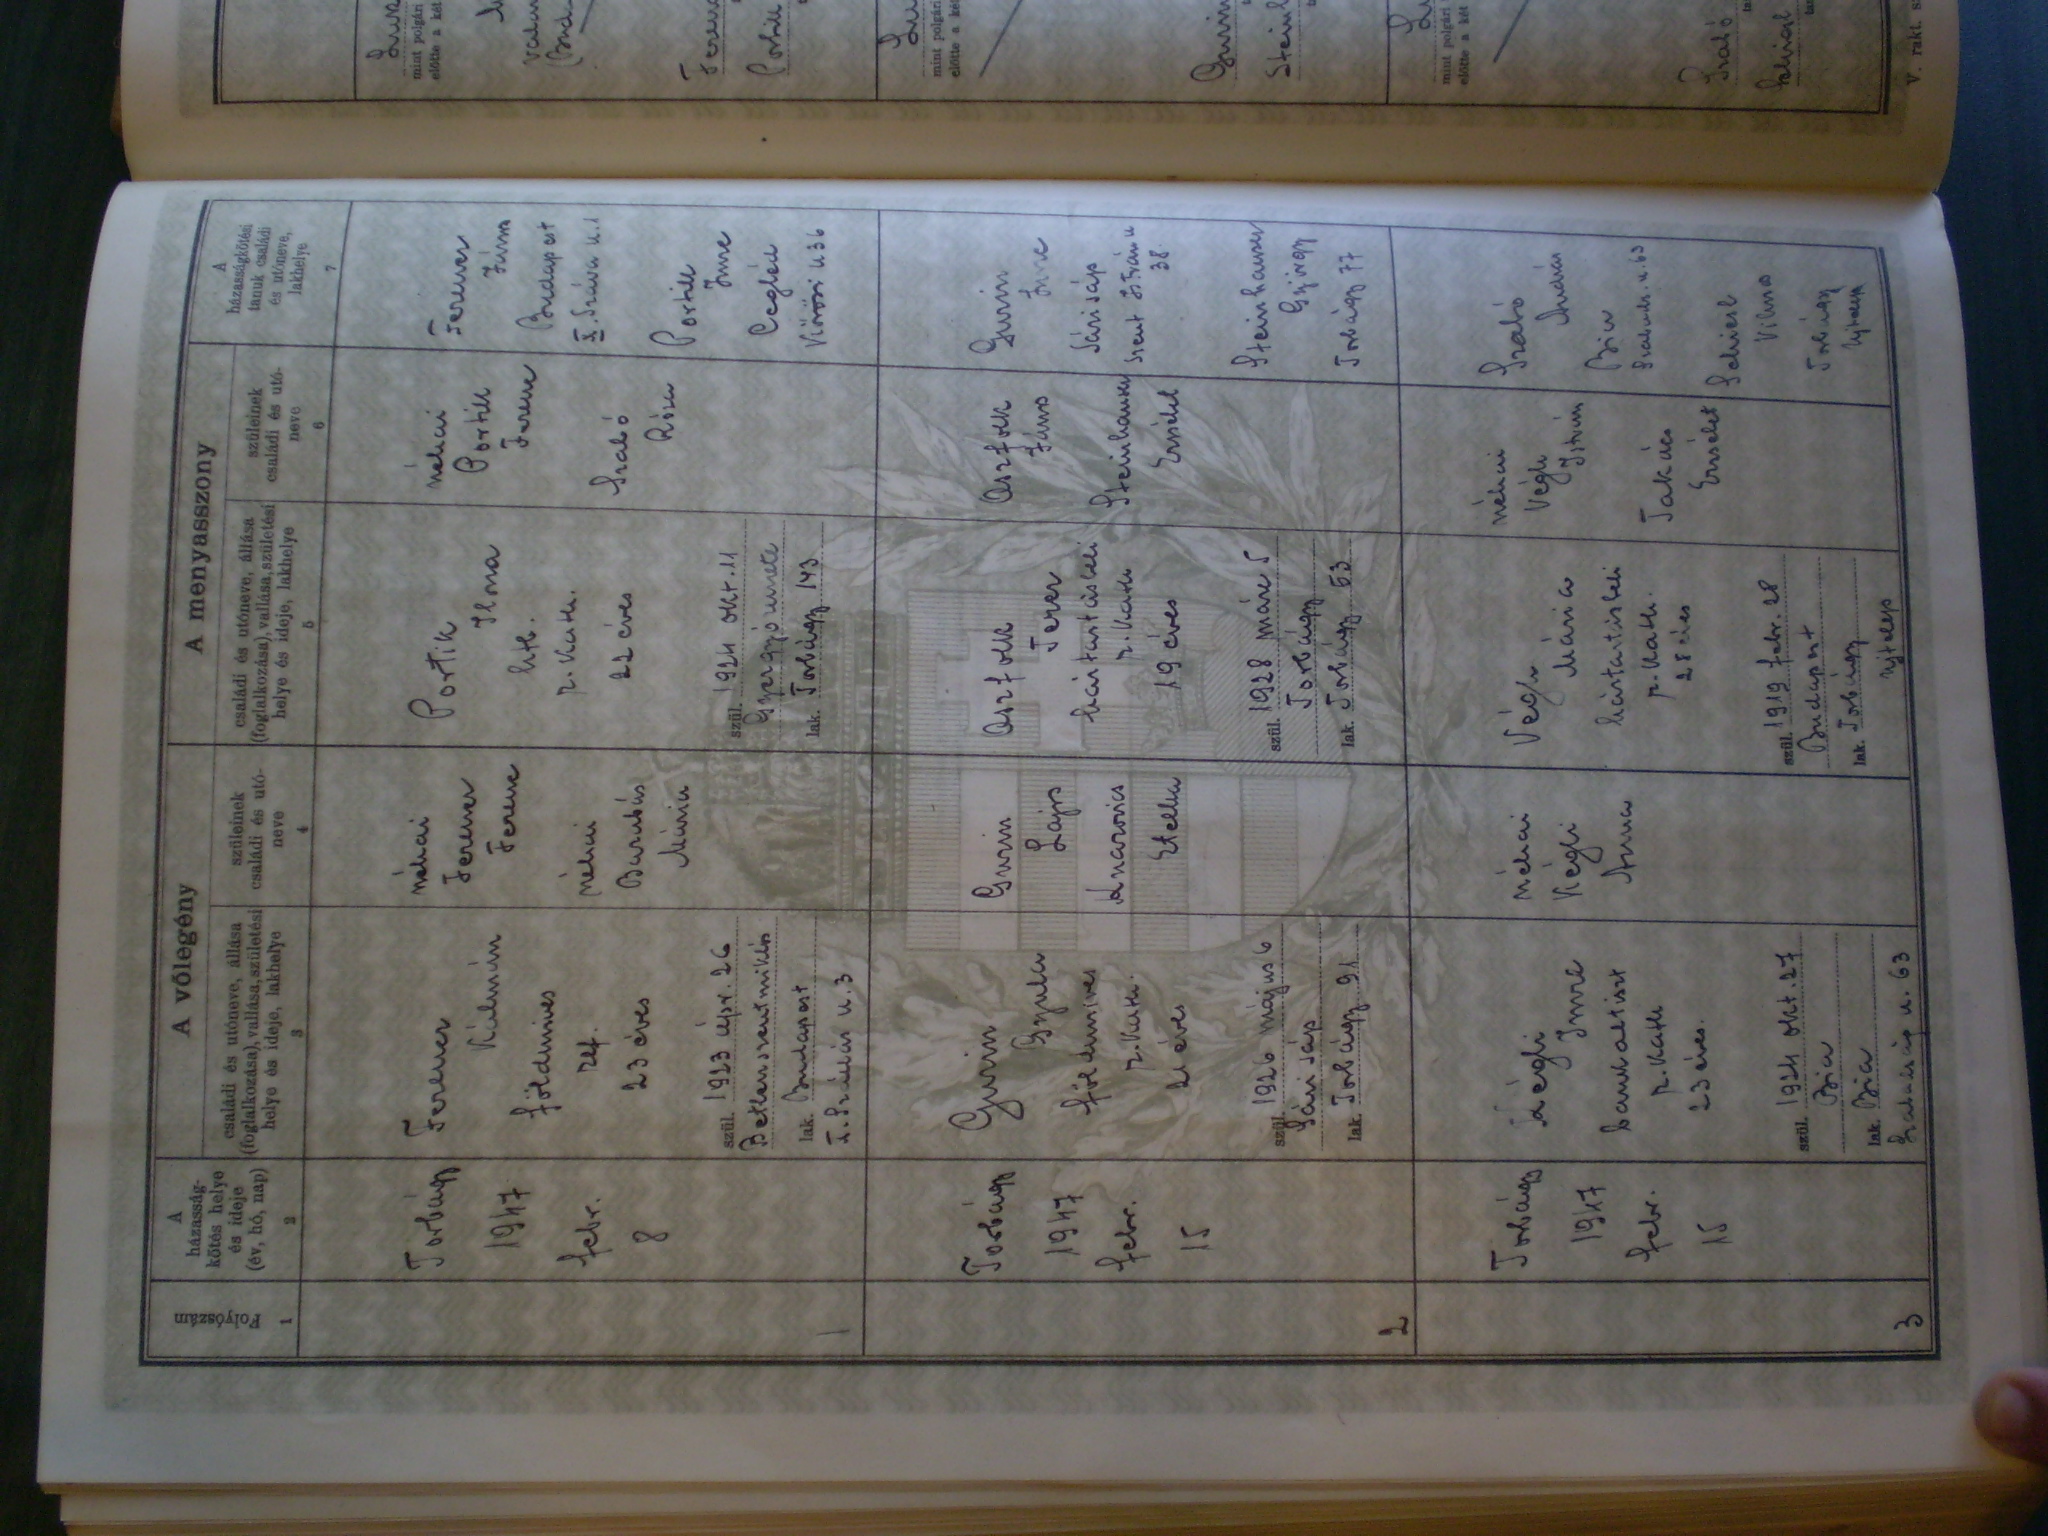 A vőlegény
A menyasszony
Folyószám
A
házasság-
kötés helye
és ideje
(év, hó, nap)
családi és utóneve, állása
(foglalkozása), vallása, születési
helye és ideje, lakhelye
szüleinek
családi és utó-
neve
családi és utóneve, állása
(foglalkozása), vallása, születési
helye és ideje, lakhelye
szüleinek
családi és utó-
neve
A
házasságkötési
tanuk családi
és utóneve,
lakhelye
1
2
3
4
5
6
7
1
Torbágy
1947
febr.
8
Ferencz
Kálmán
földmíves
ref.
23 éves
szül. 1923 ápr. 26
Betlenszentmiklós
lak. Budapest
néhai
Ferencz
Ferenc
néhai
Barabás
Mária
Portik
Ilona
htb.
r. kath.
22 éves
szül. 1924 okt. 11
lak. Torbágy 143
néhai
Portik
Ferenc
Szabó
Róza
Ferencz
János
Budapest
Portik
Imre
Cegléd
Vörösi u 36
2
Torbágy
1947
febr.
15
Gurin
Gyula
földmíves
r. kath.
21 éves
szül. 1926 május 6
Sárisáp
lak. Torbágy 91
Gurin
Lajos
Etelka
Oszfolk
Terez
háztartásbeli
r. kath
19 éves
szül. 1928 márc 5
Torbágy
lak. Torbágy 53
Oszfolk
János
Steinhauser
Erzsébet
Gurin
Imre
Sárisáp
Szent István u
38.
Steinhauser
György
Torbágy 77
3
Torbágy
1947
febr.
15
Végli
Imre
r. kath
23 éves.
szül. 1924 okt. 27
Bia
lak. Bia
Szabadság u. 63
néhai
Végli
Anna
Végh
Mária
háztartásbeli
r. kath.
28 éves
szül. 1919 febr. 28
Budapest
lak. Torbágy
ujtelep
néhai
Végh
István
Takács
Erzsébet
Szabó
András
Bia
Szabads. u. 63
Schiesl
Vilmos
Torbágy
Ujtelep
mint polgári
előtte a két
Ferenc
mint polgári
előtte a két
Gurin
Steinh
mint polgári
előtte a két
Szabó
V. rakt. sz